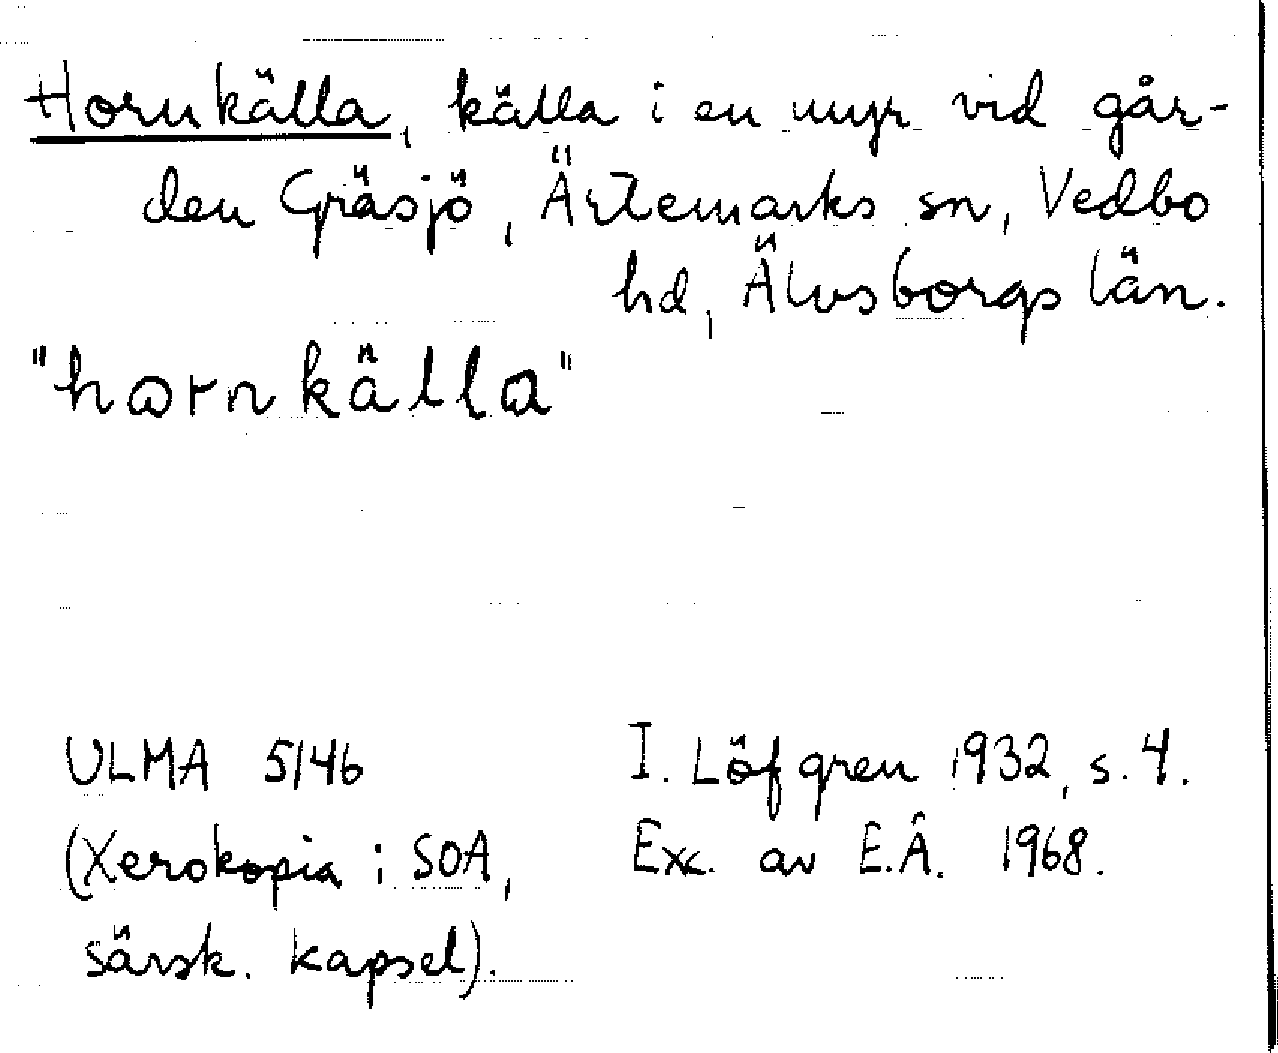 Hornkälla, källa i en myr vid går-
den Gräsjö, Ärtemarks sn, Vedbo
hd, Älvsborgs län.
"hornkälla"
ULMA 5146 I. Löfgren 1932, s. 4.
(Xerokopia i SOA, Exc. av E.Å. 1968.
särsk. kapsel).